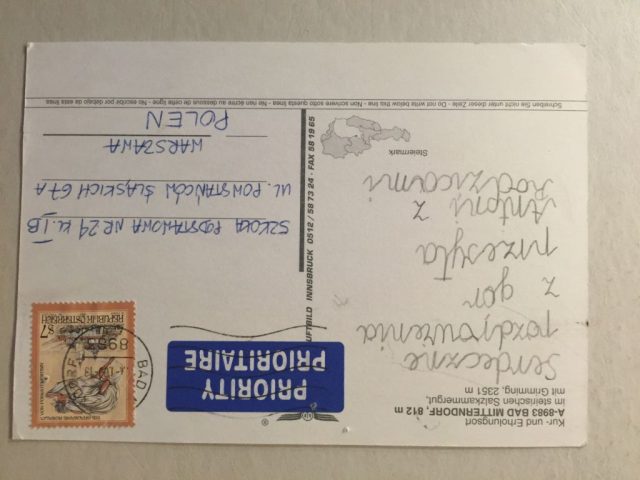 Kur- und Erholungsort
A-8983 BAD MITTERNDORF, 812 m
im steirischen Salzkammergut,
mit Grimming, 2351 m
Serdeczne
pozdrowienia
z gór
przesyła
Antoni z
Rodzicami
Steiermark
UFTBILD INNSBRUCK 0512 / 58 73 24 - FAX 58 19 65
PRIORITY
PRIORITAIRE
S7
REPUBLIK ÖSTERREICH
8983 BAD
SZKOŁA PODSTAWOWA NR 24 KL. IB
UL. POWSTAŃCÓW ŚLĄSKICH 67A
WARSZAWA
POLEN
Schreiben Sie nicht unter dieser Zeile - Do not write below this line - Non scrivere sotto questa linea - Nan non écrire au dessous de cette ligne - No escribir por debajo da esta linea